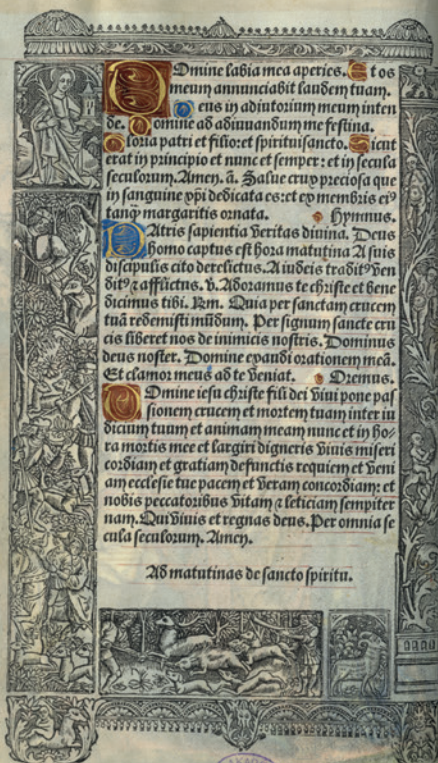 Domine labia mea aperies. Et os
meum annunciabit laudem tuam.
Deus in adiutorium meum inten
de. Domine ad adiuuandum me festina.
Gloria patri et filio: et spirituisancto. Sicut
erat in principio et nunc et semper: et in secula
seculorum. Amen. ā. Salue crux preciosa que
in sanguine xpi dedicata es: et ex membris eiꝰ
tanqꝫ margaritis ornata. Hymnus.
PAtris sapientia veritas diuina. Deus
homo captus est hora matutina A suis
discipulis cito derelictus. A iudeis traditꝰ ven
ditꝰ ⁊ afflictus. v. Adoramus te christe et bene
dicimus tibi. Rm. Quia per sanctam crucem
tuā redemisti mūdum. Per signum sancte cru
cis liberet nos de inimicis nostris. Dominus
deus noster. Domine exaudi orationem meā.
Et clamor meus ad te veniat. Oremus.
DOmine iesu christe fili dei viui pone pas
sionem crucem et mortem tuam inter iu
dicium tuum et animam meam nunc et in ho/
ra mortis mee et largiri digneris viuis miseri
cordiam et gratiam defunctis requiem et veni
am ecclesie tue pacem et veram concordiam: et
nobis peccatoribus vitam ⁊ leticiam sempiter
nam. Qui viuis et regnas deus. Per omnia se
cula seculorum. Amen.
Ad matutinas de sancto spiritu.